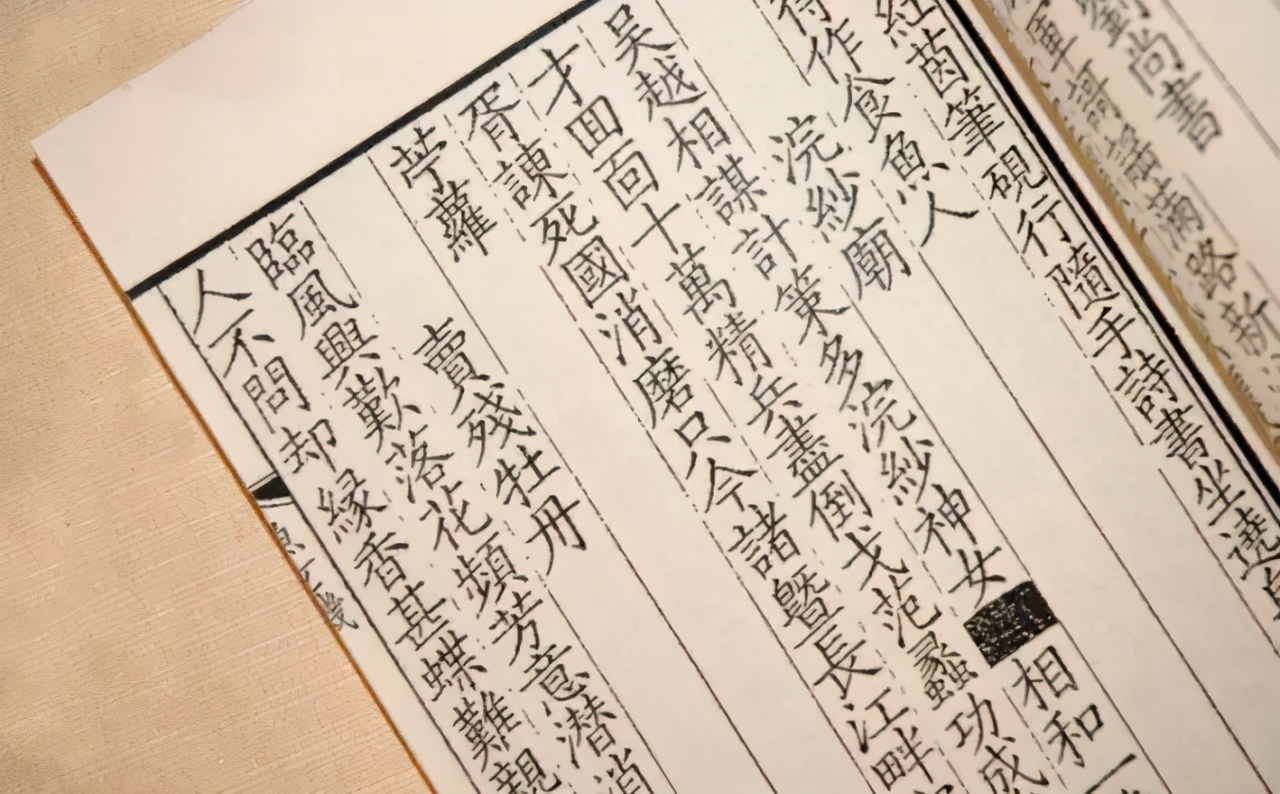 劉尚書
滿路新
紅茵筆硯行隨手詩書坐遶
得作食魚人
浣紗廟
吳越相謀計策多浣紗神女相和一
才囬靣十萬精兵盡倒戈范蠡功成
胥諫死國消磨只今諸暨長江畔
苧蘿
賣殘牡丹
臨風興歎落花頻芳意潛消
人不問却緣香甚蝶難親